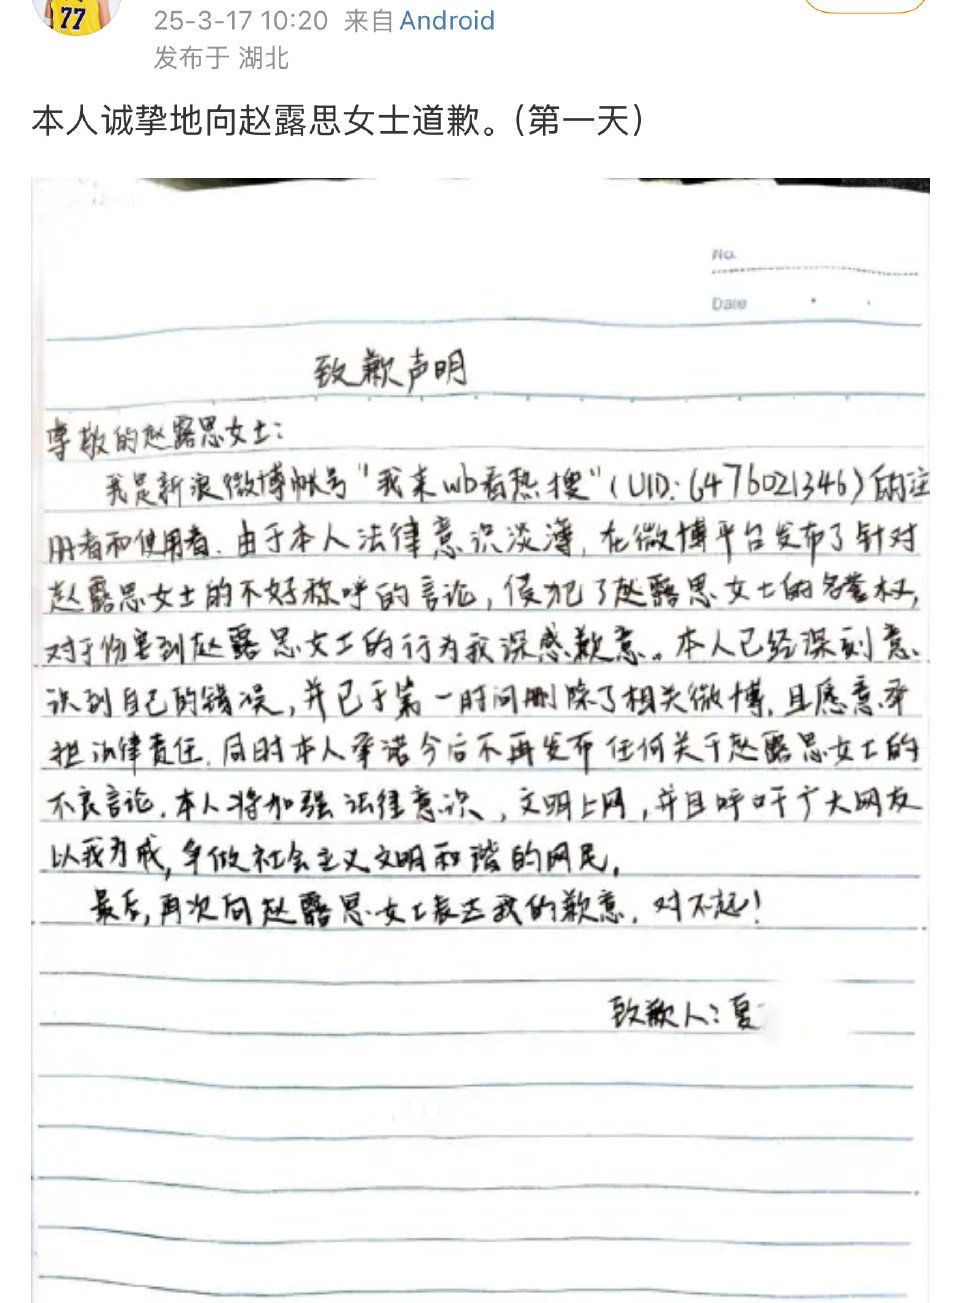 77
25-3-17 10:20 来自 Android
发布于 湖北
本人诚挚地向赵露思女士道歉。(第一天)
No.
Date
致歉声明
尊敬的赵露思女士:
我是新浪微博帐号"我来wb看热搜"(UID:6476021346)的注
册者和使用者.由于本人法律意识淡薄,在微博平台发布了针对
赵露思女士的不好称呼的言论,侵犯了赵露思女士的名誉权,
对于伤害到赵露思女士的行为我深感歉意。本人已经深刻意
识到自己的错误,并已于第一时间删除了相关微博,且愿意承
担法律责任.同时本人承诺今后不再发布任何关于赵露思女士的
不良言论.本人将加强法律意识,文明上网,并且呼吁广大网友
以我为戒,争做社会主义文明和谐的网民.
最后,再次向赵露思女士表达我的歉意.对不起!
致歉人:夏